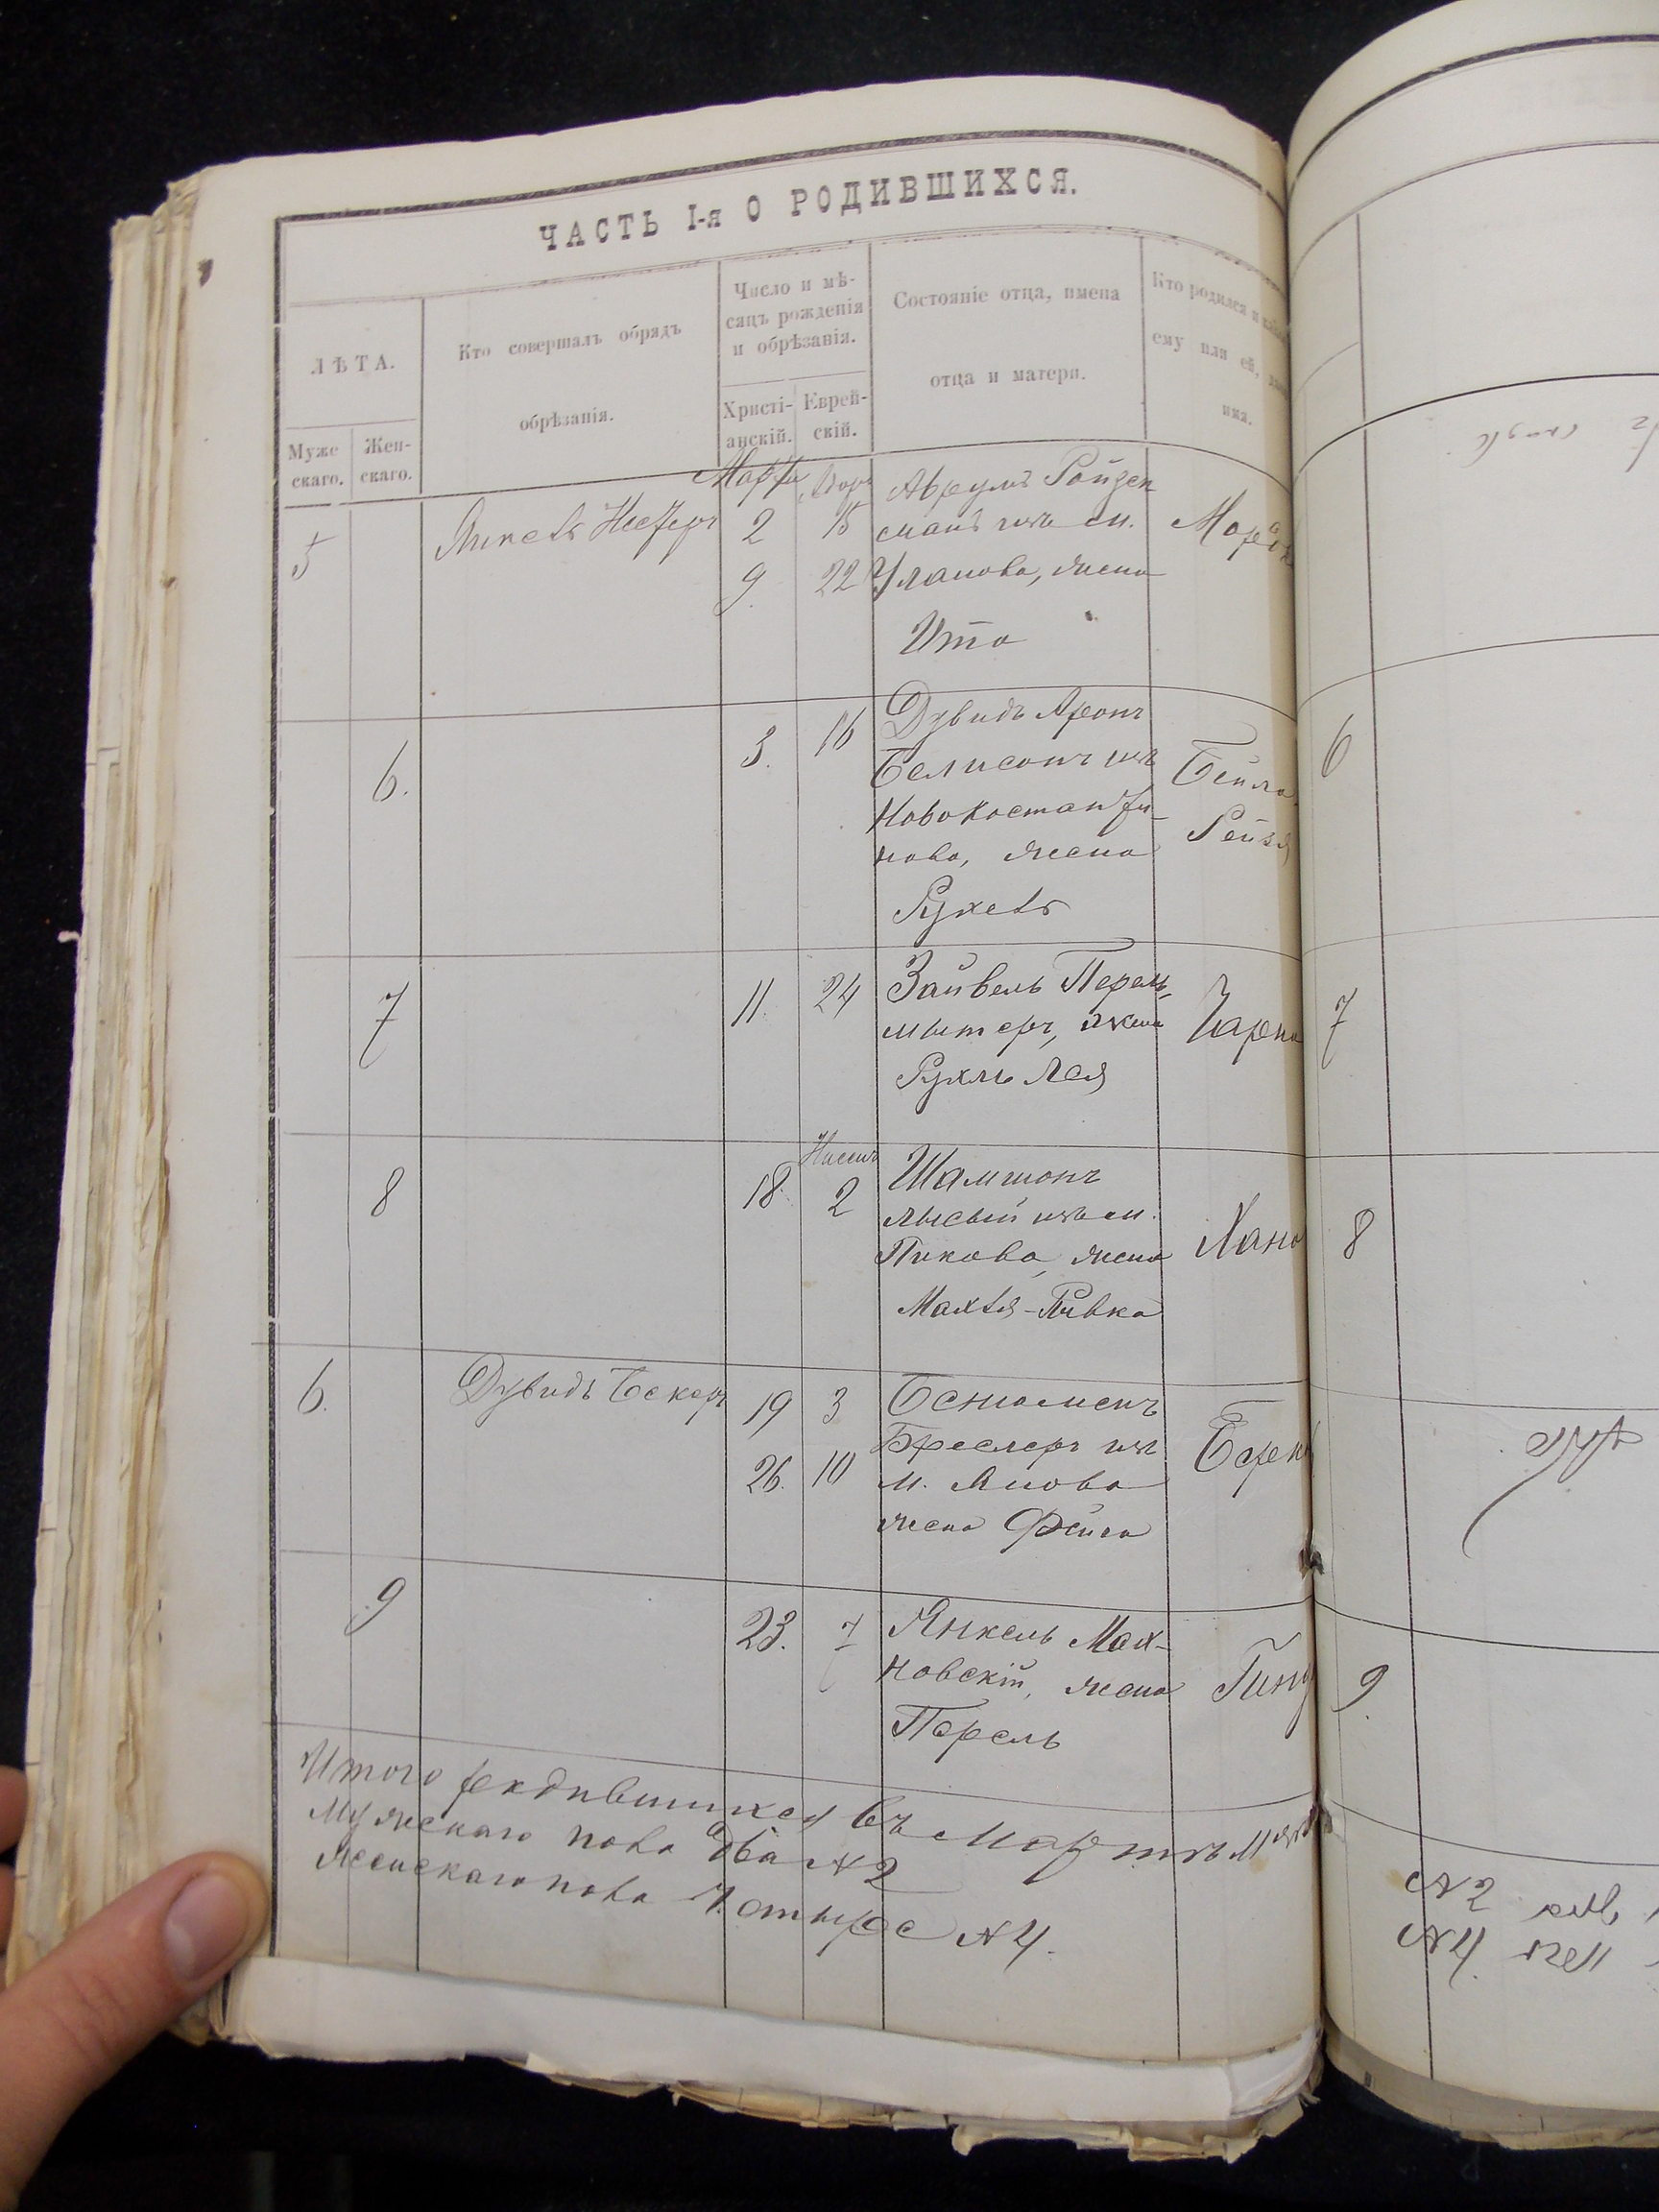 ЧАСТЬ I-я О РОДИВШИХСЯ.
ЛѢТА.
Муже
скаго.
Жен-
скаго.
Кто совершалъ обрядъ
обрѣзанія.
Число и мѣ-
сяцъ рожденія
и обрѣзанія.
Христі-
анскій.
Еврей-
скій.
Состояніе отца, имена
отца и матери.
Кто родился и
ему или ей,
имя.
Марта
5
2 15
9 22
Аврумъ Ройзен
манъ изъ м.
Уланова, жена
Ита
6.
3. 16
Дувидъ Аронъ
изъ
Новоконстанти-
нова, жена
Рухель
Бейла
Рейзя
6
7
11. 24
Зайвель Перель-
мутеръ, жена
Рухль Лея
Чарна
7
8
18. Нисанъ
2
Шамшонъ
Лысый изъ м.
Пикова, жена
Малья-Ривка
Хана
8
6.
Дувидъ Бекеръ
19 3
26. 10
Беніоменъ
Бреслеръ изъ
м. Янова
жена Фейга
Берко
9
23. 7
Янкель Мах-
новскій, жена
Перель
9
Итого родившихся въ Мартѣ
Мужскаго пола два № 2
Женскаго пола Четыре № 4.
№ 2
№ 4